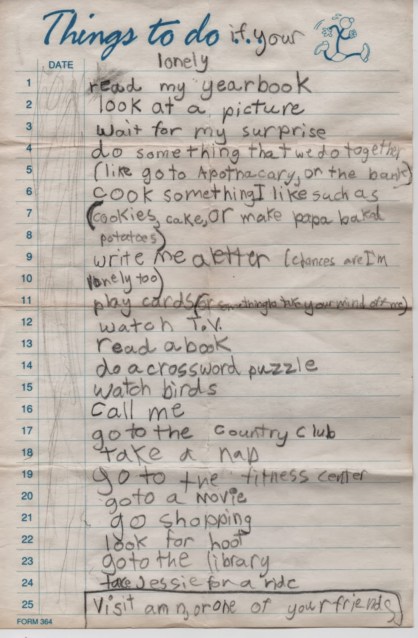 Things to do .. if your
lonely
DATE
1 read my yearbook
2 look at a picture
3 wait for my surprise
4 do something that we do together
5 (like go to Apothacary, or the bank)
6 cook something I like such as
7 (cookies, cake, or make papa bakad
8 potatoes)
9 write me a letter (chances are I'm
10 lonely too)
11 play cards (or something to take your mind off me)
12 watch T.V.
13 read a book
14 do a crossword puzzle
15 watch birds
16 call me
17 go to the Country Club
18 take a nap
19 go to the fitness center
20 go to a movie
21 go shopping
22 look for hoot
23 go to the library
24 take Jessie for a ride
25 Visit or one of your friends
FORM 364